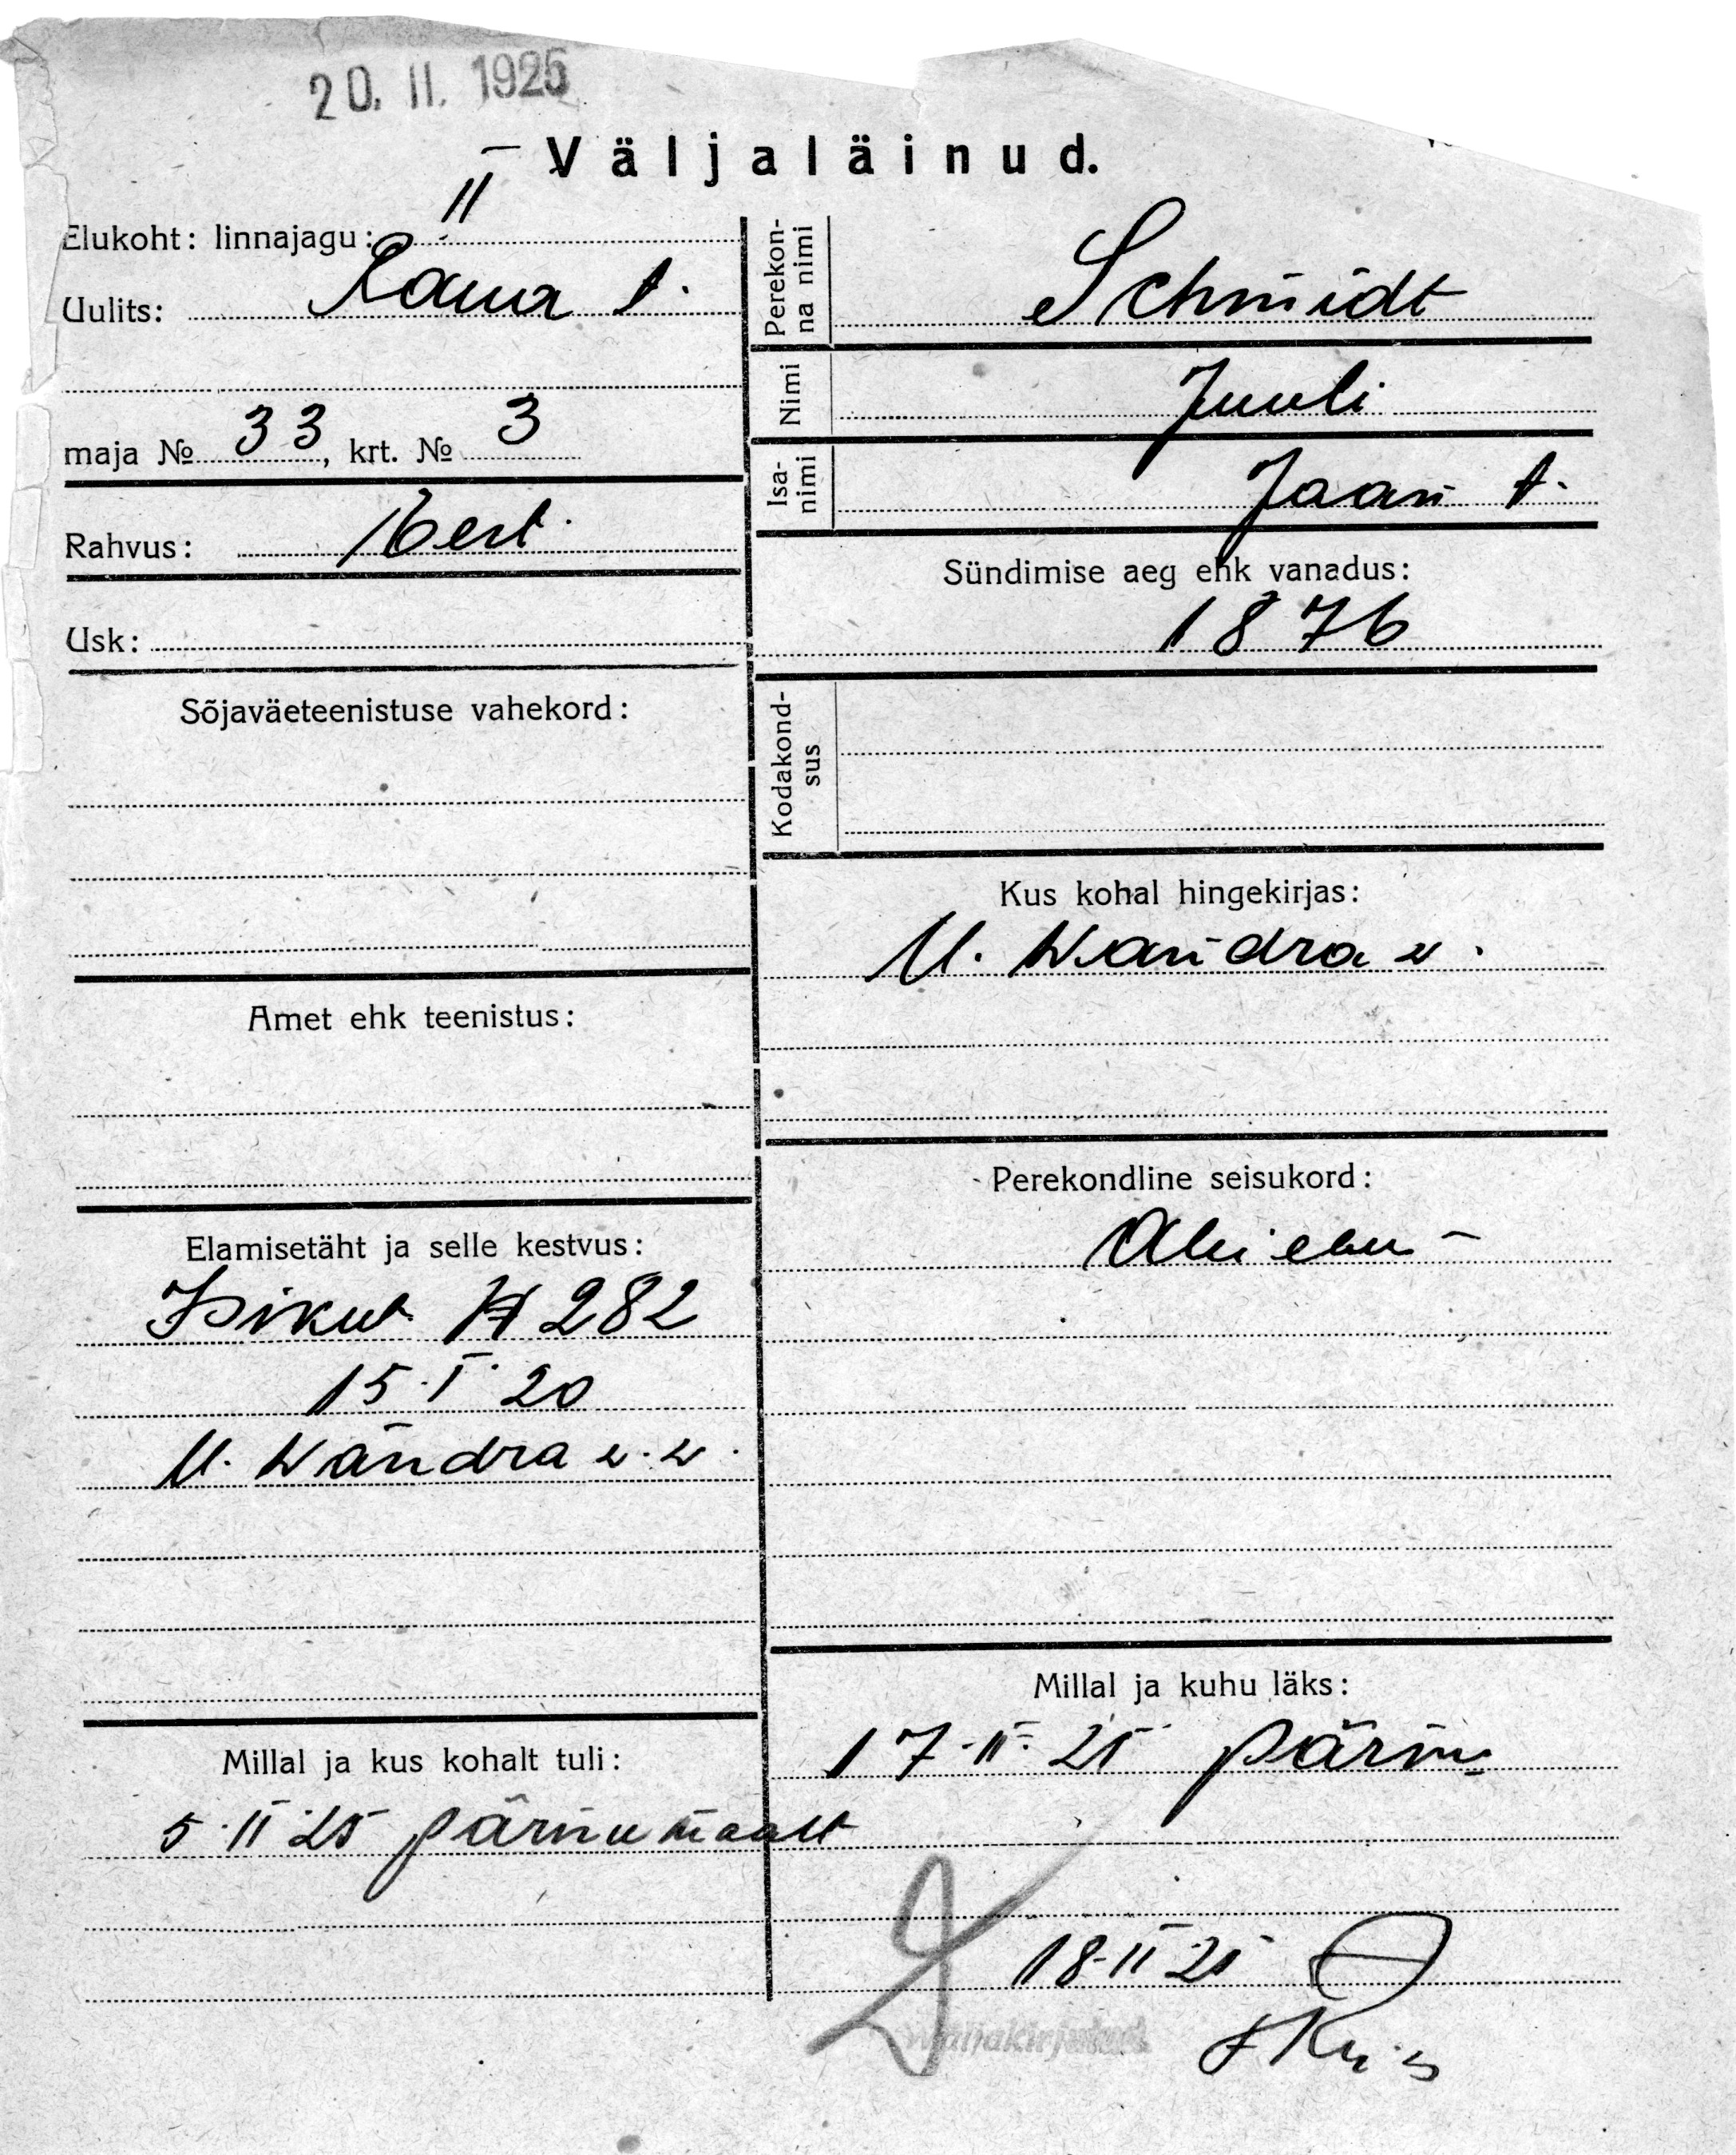 20. II. 1925
Väljaläinud.
Elukoht: linnajagu: II
Uulits: Raua t.
maja № 33, krt. № 3
Rahvus: eest.
Usk:
Sõjaväeteenistuse vahekord:
Amet ehk teenistus:
Elamisetäht ja selle kestvus:
Isikut. № 282
15.I 20
U. Wändra v. v.
Millal ja kus kohalt tuli:
5.II 25 Pärnumaalt
Perekon-
na nimi
Schmidt
Nimi
Juuli
Isa-
nimi
Jaan t.
Sündimise aeg ehk vanadus:
1876
Kodakond-
sus
Kus kohal hingekirjas:
U. Wändra v.
Perekondline seisukord:
Abielu
Millal ja kuhu läks:
17.II.25 Pärnu
18.II 25
Wäljakirjutud